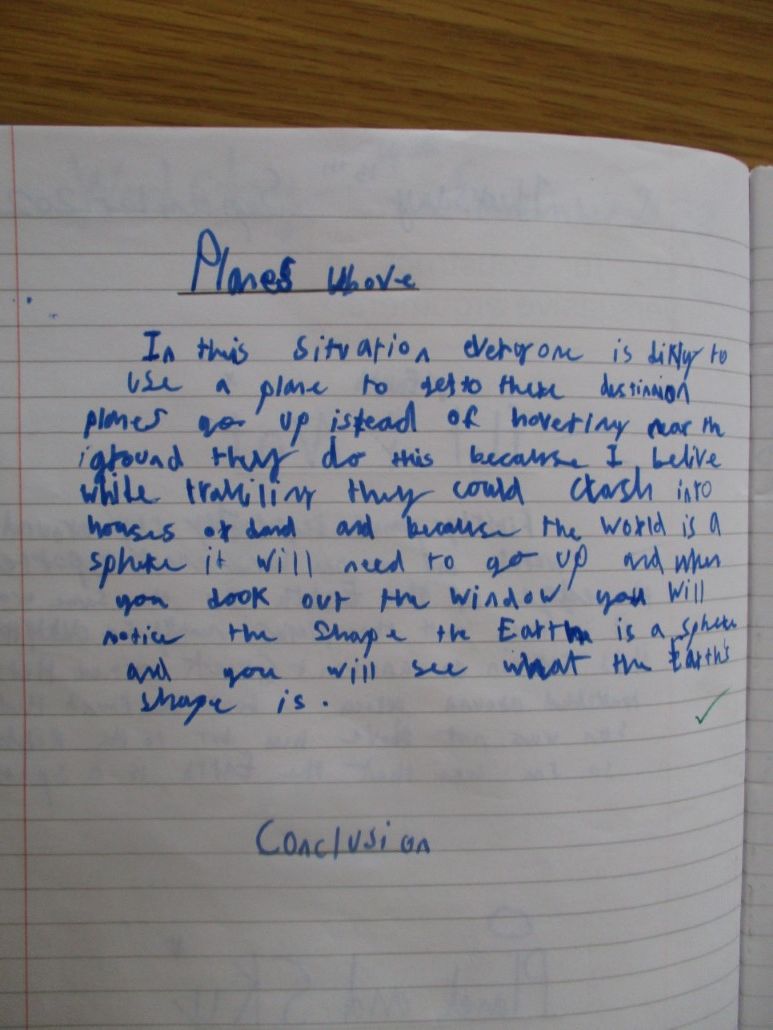 Planes above
In this situation everyone is likly to
use a plane to get to there destinaion
planes go up istead of hovering near the
ground they do this because I belive
while traviling they could crash into
houses or land and because the world is a
sphere it will need to go up and when
you look out the window you will
notice the shape the Earth is a sphere
and you will see what the Earth's
shape is.
Conclusion